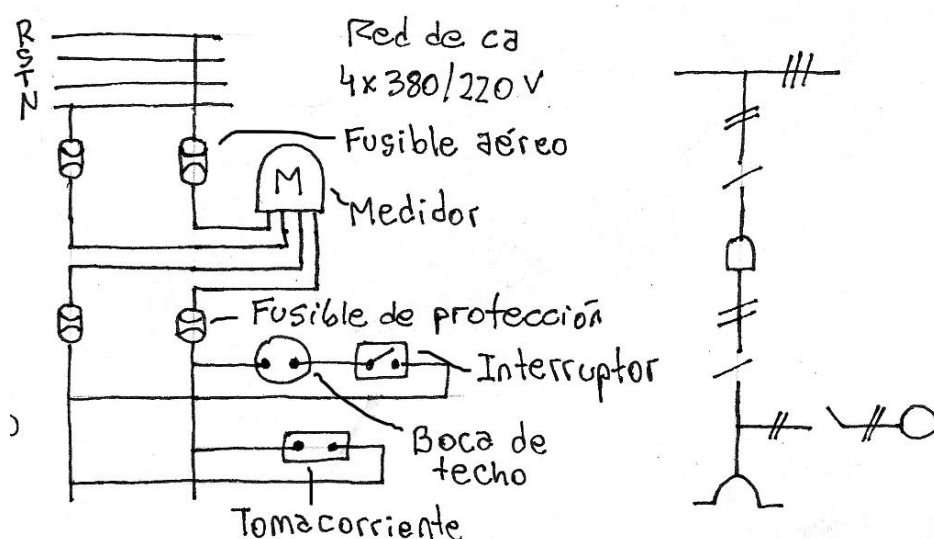 R
S
T
N
Red de ca
4x380/220 V
Fusible aéreo
M
Medidor
Fusible de protección
Interruptor
Boca de
techo
Tomacorriente